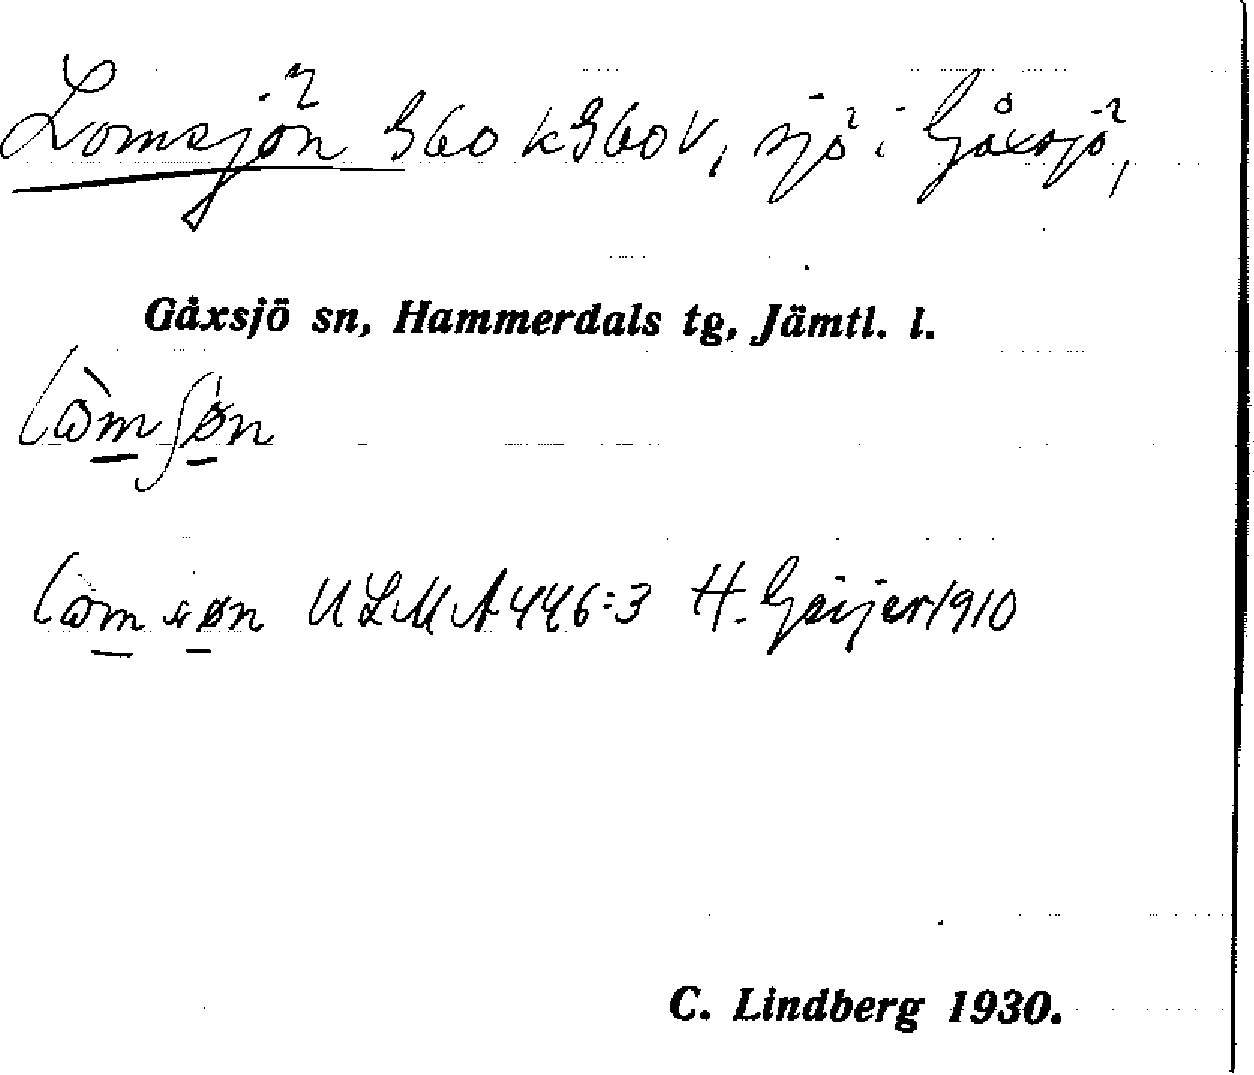 Lomsjön G60 kG60V, sjö i Gåxsjö,
Gåxsjö sn, Hammerdals tg, Jämtl. l.
lòmʃøn
lomsøn ULMA 446:3 H. Geijer 1910
C. Lindberg 1930.